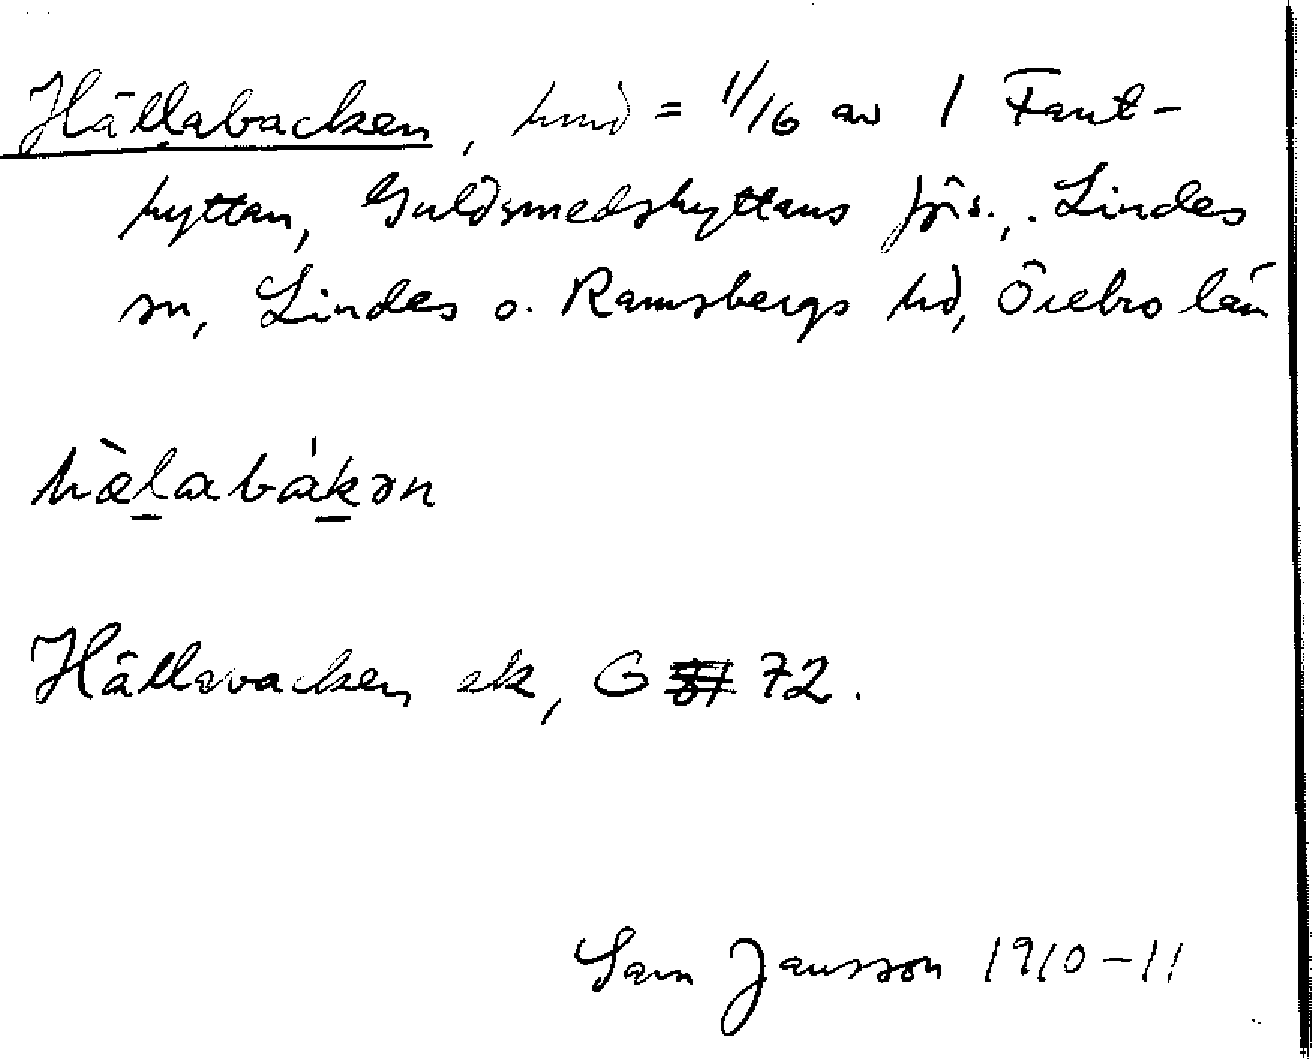 Hällabacken, hmd = 1/16 av 1 Fant-
hyttan, Guldsmedshyttans förs., Lindes
sn, Lindes o. Ramsbergs hd, Örebro län
hæ̀l̠abákən
Hällsvacken ek, G 72.
Sam Jansson 1910-11